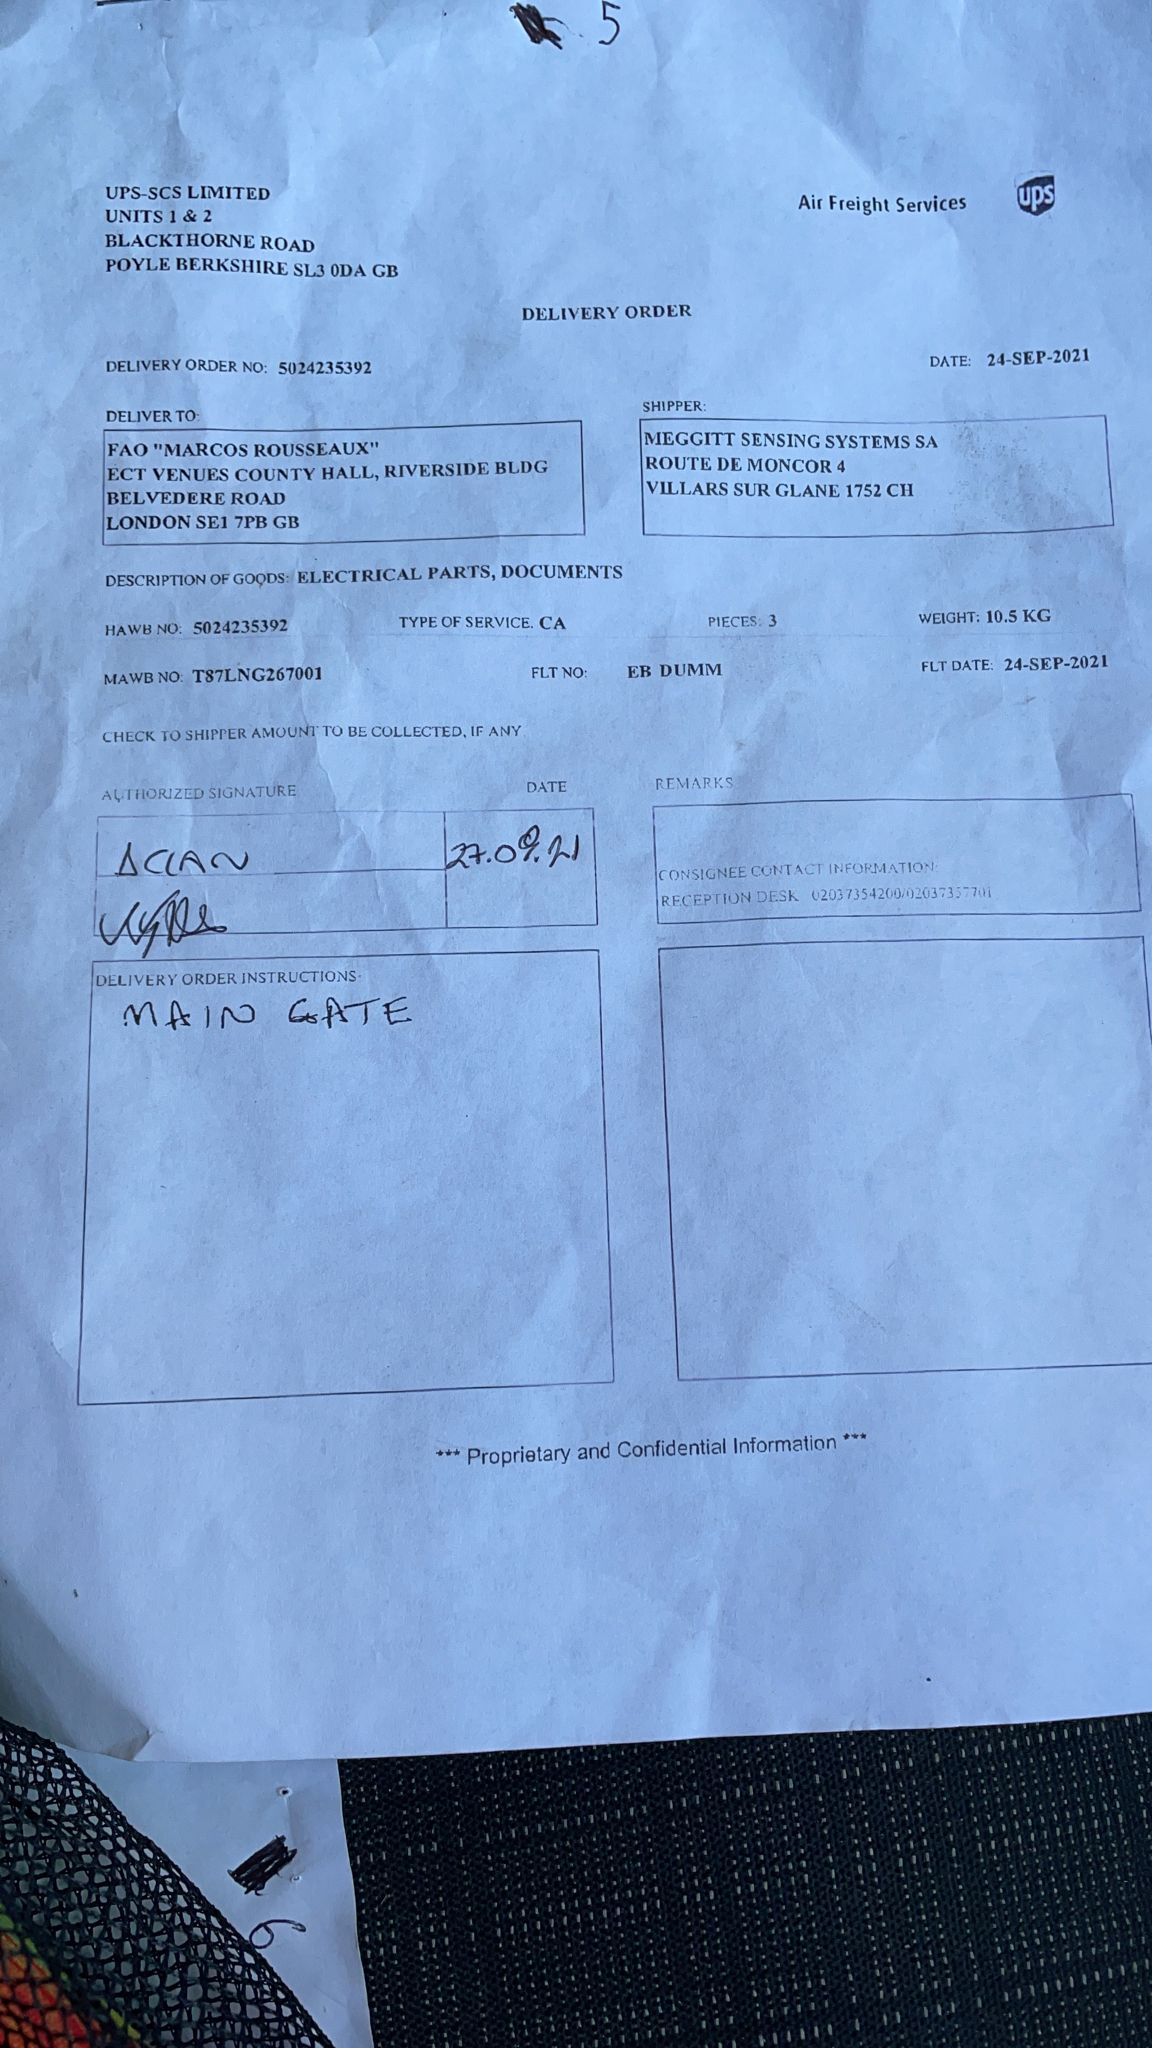 5
UPS-SCS LIMITED
UNITS 1 & 2
BLACKTHORNE ROAD
POYLE BERKSHIRE SL3 0DA GB
Air Freight Services
ups
DELIVERY ORDER
DELIVERY ORDER NO: 5024235392
DATE: 24-SEP-2021
DELIVER TO:
FAO "MARCOS ROUSSEAUX"
ECT VENUES COUNTY HALL, RIVERSIDE BLDG
BELVEDERE ROAD
LONDON SE1 7PB GB
SHIPPER:
MEGGITT SENSING SYSTEMS SA
ROUTE DE MONCOR 4
VILLARS SUR GLANE 1752 CH
DESCRIPTION OF GOODS: ELECTRICAL PARTS, DOCUMENTS
HAWB NO: 5024235392 TYPE OF SERVICE. CA PIECES: 3 WEIGHT: 10.5 KG
MAWB NO: T87LNG267001 FLT NO: EB DUMM FLT DATE: 24-SEP-2021
CHECK TO SHIPPER AMOUNT TO BE COLLECTED, IF ANY
AUTHORIZED SIGNATURE DATE
27.09.21
REMARKS
CONSIGNEE CONTACT INFORMATION:
RECEPTION DESK 02037354200/02037357701
DELIVERY ORDER INSTRUCTIONS:
MAIN GATE
*** Proprietary and Confidential Information ***